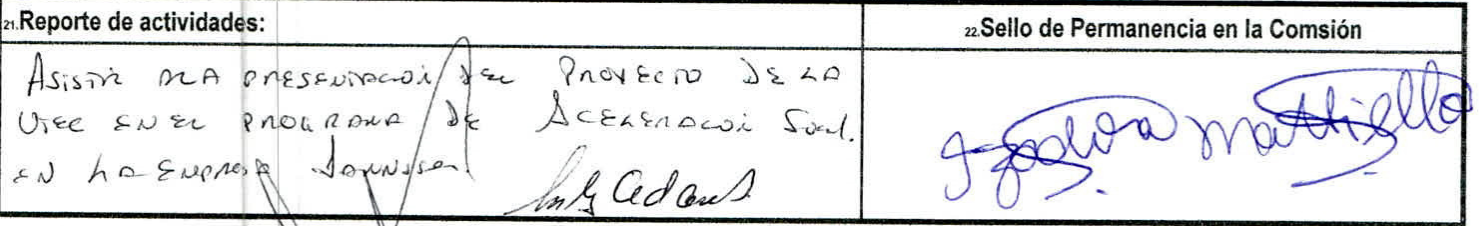 21.Reporte de actividades:
22.Sello de Permanencia en la Comsión
Asistir a la presentación del Proyecto de la
Utec en el programa de Aceleración Social.
en la Empresa Janssen.
Mattiello